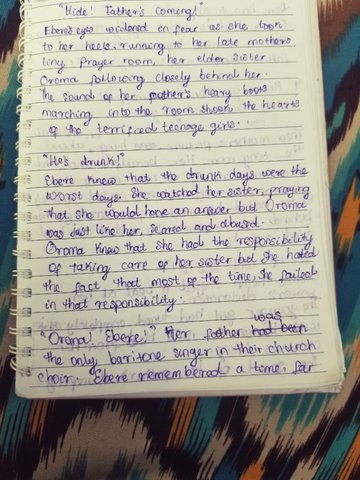 "Hide! Father's coming!"
Ebere's eyes widened in fear as she took
to her heels, running to her late mothers
tiny prayer room, her elder sister
Oroma following closely behind her.
The sound of her father's heavy boots
marching into the room shook the hearts
of the terrified teenage girls.
"He's drunk!"
Ebere knew that the drunk days were the
worst days. She watched her sister, praying
that she would have an answer but Oroma
was just like her. Scared and abused.
Oroma knew that she had the responsibility
of taking care of her sister but she hated
the fact that most of the time, she failed
in that responsibility.
"Oroma! Ebere!" Her father had been was
the only baritone singer in their church
choir. Ebere remembered a time, far